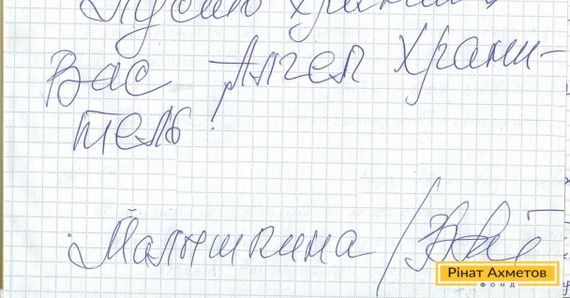 Пусть хранит
Вас Ангел Храни-
тель!
Малышкина /
Рінат Ахметов
ФОНД